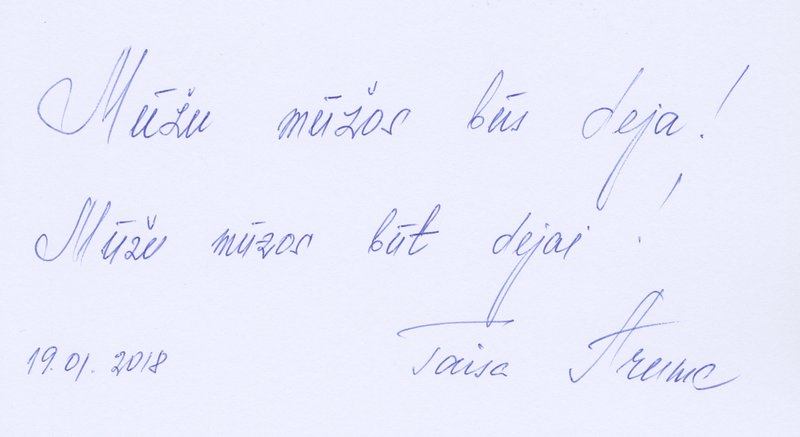 Mūžu mūžos būs deja!
Mūžu mūzos būt dejai!
19.01.2018 Taisa Aruma